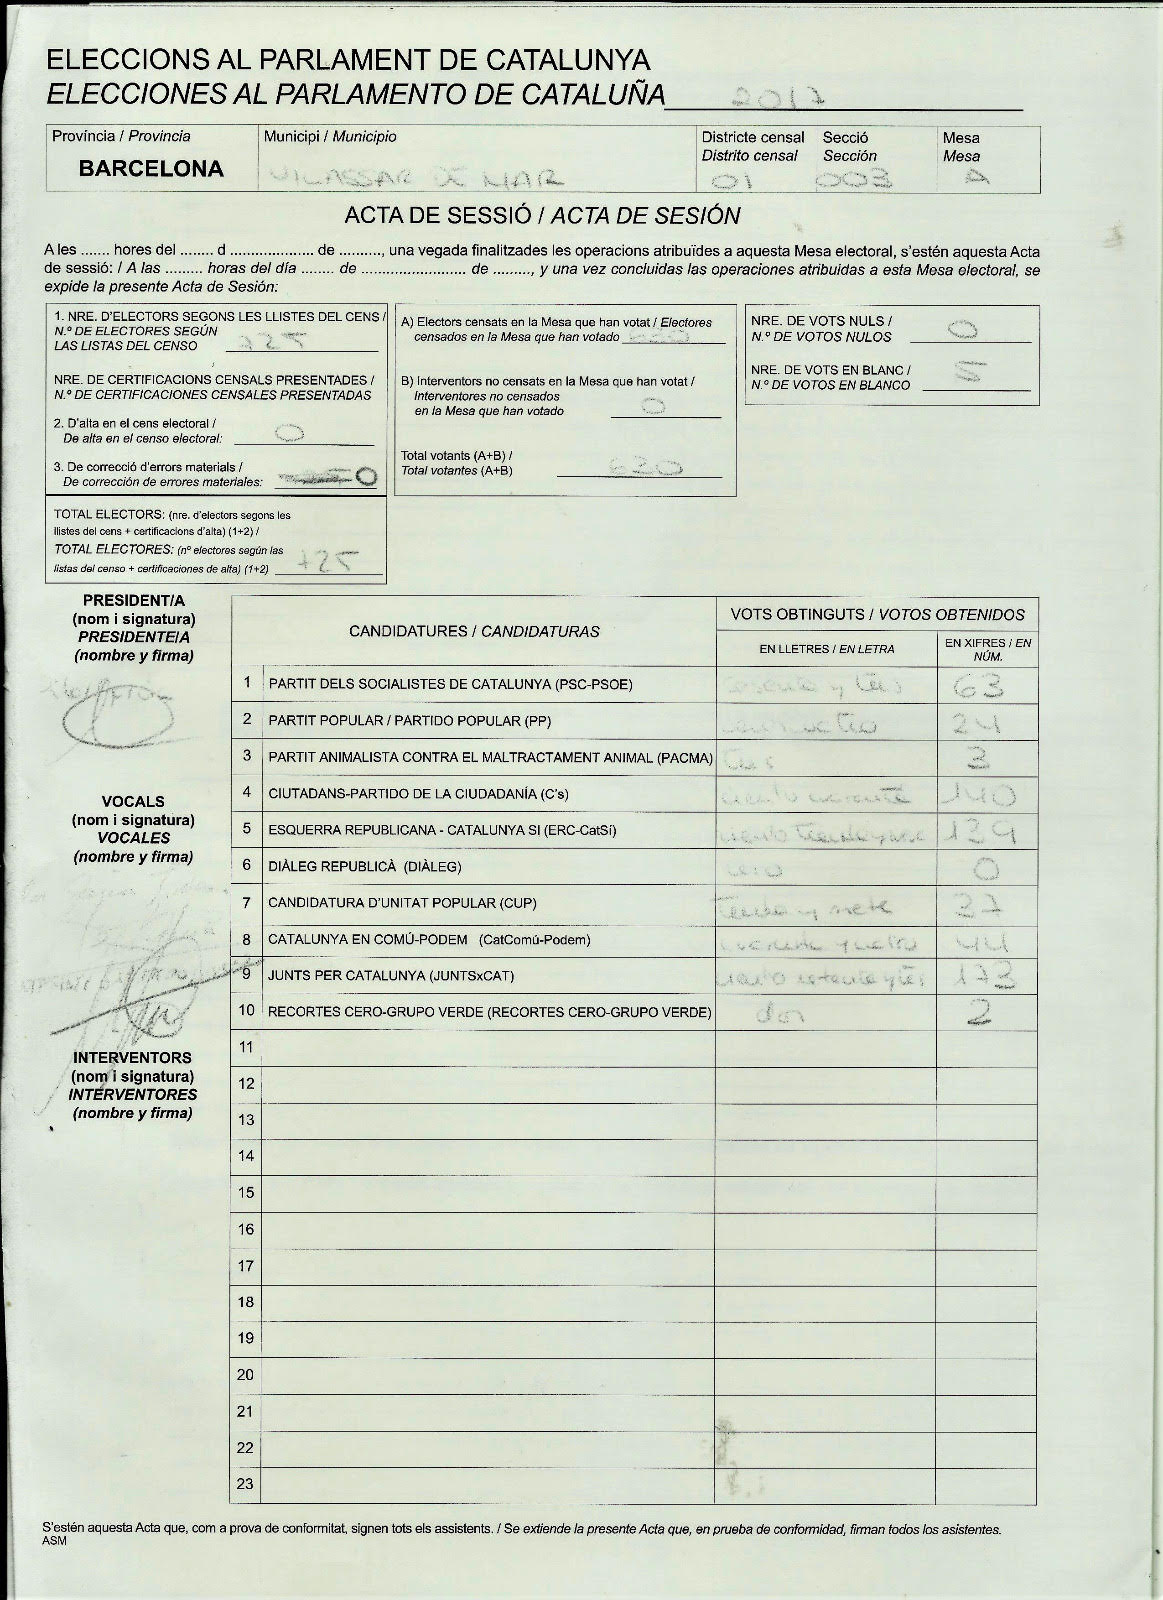 ELECCIONS AL PARLAMENT DE CATALUNYA
ELECCIONES AL PARLAMENTO DE CATALUÑA 2017
Província / Provincia
BARCELONA
Municipi / Municipio
VILASSAR DE MAR
Districte censal Secció Mesa
Distrito censal Sección Mesa
01 003 A
ACTA DE SESSIÓ / ACTA DE SESIÓN
A les ....... hores del ........ d .................... de .........., una vegada finalitzades les operacions atribuïdes a aquesta Mesa electoral, s'estén aquesta Acta
de sessió: / A las ......... horas del día ........ de ......................... de ........., y una vez concluidas las operaciones atribuidas a esta Mesa electoral, se
expide la presente Acta de Sesión:
1. NRE. D'ELECTORS SEGONS LES LLISTES DEL CENS /
N.º DE ELECTORES SEGÚN
LAS LISTAS DEL CENSO 725
NRE. DE CERTIFICACIONS CENSALS PRESENTADES /
N.º DE CERTIFICACIONES CENSALES PRESENTADAS
2. D'alta en el cens electoral /
De alta en el censo electoral: 0
3. De correcció d'errors materials /
De corrección de errores materiales: 0
TOTAL ELECTORS: (nre. d'electors segons les
llistes del cens + certificacions d'alta) (1+2) /
TOTAL ELECTORES: (nº electores según las
listas del censo + certificaciones de alta) (1+2) 725
A) Electors censats en la Mesa que han votat / Electores
censados en la Mesa que han votado 630
B) Interventors no censats en la Mesa que han votat /
Interventores no censados
en la Mesa que han votado 0
Total votants (A+B) /
Total votantes (A+B) 630
NRE. DE VOTS NULS /
N.º DE VOTOS NULOS 0
NRE. DE VOTS EN BLANC /
N.º DE VOTOS EN BLANCO 5
PRESIDENT/A
(nom i signatura)
PRESIDENTE/A
(nombre y firma)
VOCALS
(nom i signatura)
VOCALES
(nombre y firma)
INTERVENTORS
(nom i signatura)
INTERVENTORES
(nombre y firma)
CANDIDATURES / CANDIDATURAS
VOTS OBTINGUTS / VOTOS OBTENIDOS
EN LLETRES / EN LETRA
EN XIFRES / EN
NÚM.
1 PARTIT DELS SOCIALISTES DE CATALUNYA (PSC-PSOE) sesenta y tres 63
2 PARTIT POPULAR / PARTIDO POPULAR (PP) 24
3 PARTIT ANIMALISTA CONTRA EL MALTRACTAMENT ANIMAL (PACMA) tres 3
4 CIUTADANS-PARTIDO DE LA CIUDADANÍA (C's) ciento cuarenta 140
5 ESQUERRA REPUBLICANA - CATALUNYA SI (ERC-CatSí) ciento treinta y nueve 139
6 DIÀLEG REPUBLICÀ (DIÀLEG) cero 0
7 CANDIDATURA D'UNITAT POPULAR (CUP) treinta y siete 37
8 CATALUNYA EN COMÚ-PODEM (CatComú-Podem) cuarenta y cuatro 44
9 JUNTS PER CATALUNYA (JUNTSxCAT) ciento setenta y tres 173
10 RECORTES CERO-GRUPO VERDE (RECORTES CERO-GRUPO VERDE) dos 2
11
12
13
14
15
16
17
18
19
20
21
22
23
S'estén aquesta Acta que, com a prova de conformitat, signen tots els assistents. / Se extiende la presente Acta que, en prueba de conformidad, firman todos los asistentes.
ASM